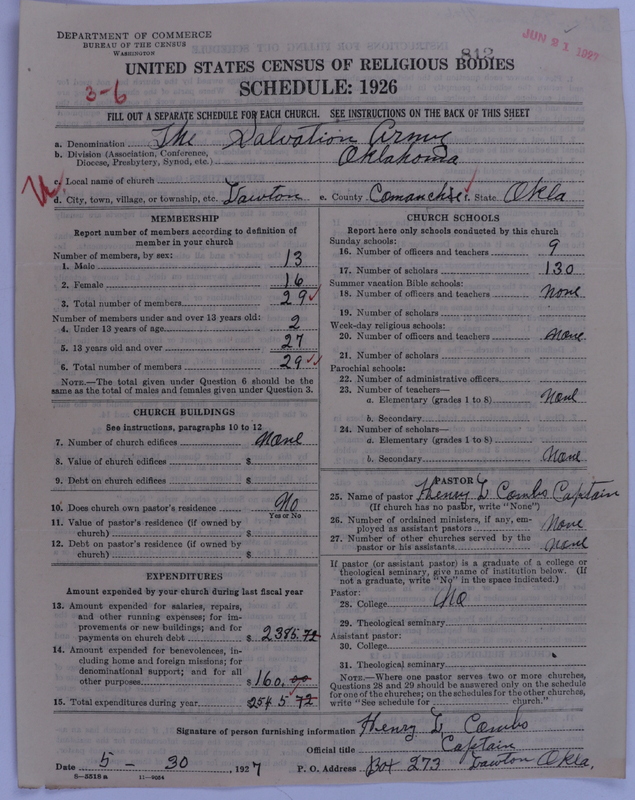 DEPARTMENT OF COMMERCE
BUREAU OF THE CENSUS
WASHINGTON
812
JUN 21 1927
UNITED STATES CENSUS OF RELIGIOUS BODIES
SCHEDULE: 1926
3-6
FILL OUT A SEPARATE SCHEDULE FOR EACH CHURCH. SEE INSTRUCTIONS ON THE BACK OF THIS SHEET
a. Denomination The Salvation Army
b. Division (Association, Conference, Diocese, Presbytery, Synod, etc.) Oklahoma
c. Local name of church
d. City, town, village, or township, etc. Lawton e. County Comanche f. State Okla
MEMBERSHIP
Report number of members according to definition of
member in your church
Number of members, by sex:
1. Male 13
2. Female 16
3. Total number of members 29
Number of members under and over 13 years old:
4. Under 13 years of age 2
5. 13 years old and over 27
6. Total number of members 29
NOTE.—The total given under Question 6 should be the
same as the total of males and females given under Question 3.
CHURCH BUILDINGS
See instructions, paragraphs 10 to 12
7. Number of church edifices None
8. Value of church edifices $
9. Debt on church edifices $
10. Does church own pastor's residence No
Yes or No
11. Value of pastor's residence (if owned by
church) $
12. Debt on pastor's residence (if owned by
church) $
EXPENDITURES
Amount expended by your church during last fiscal year
13. Amount expended for salaries, repairs,
and other running expenses; for im-
provements or new buildings; and for
payments on church debt $ 2385.72
14. Amount expended for benevolences, in-
cluding home and foreign missions; for
denominational support; and for all
other purposes $ 160.00
15. Total expenditures during year $ 2545.72
CHURCH SCHOOLS
Report here only schools conducted by this church
Sunday schools:
16. Number of officers and teachers 9
17. Number of scholars 130
Summer vacation Bible schools:
18. Number of officers and teachers None
19. Number of scholars
Week-day religious schools:
20. Number of officers and teachers None
21. Number of scholars
Parochial schools:
22. Number of administrative officers
23. Number of teachers—
a. Elementary (grades 1 to 8) None
b. Secondary
24. Number of scholars—
a. Elementary (grades 1 to 8)
b. Secondary None
PASTOR
25. Name of pastor Henry L Combs Captain
(If church has no pastor, write "None")
26. Number of ordained ministers, if any, em-
ployed as assistant pastors None
27. Number of other churches served by the
pastor or his assistants None
If pastor (or assistant pastor) is a graduate of a college or
theological seminary, give name of institution below. (If
not a graduate, write "No" in the space indicated.)
Pastor:
28. College No
29. Theological seminary
Assistant pastor:
30. College
31. Theological seminary
NOTE.—Where one pastor serves two or more churches,
Questions 28 and 29 should be answered only on the schedule
for one of the churches; on the schedules for the other churches,
write "See schedule for church."
Signature of person furnishing information Henry L Combs
Official title Captain
Date 5 - 30, 1927 P. O. Address Box 273 Lawton Okla.
8-5518a 11-9054